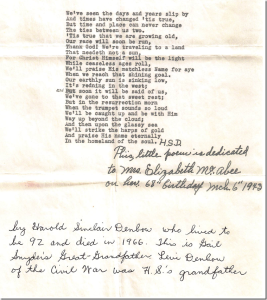 We've seen the days and years slip by
And times have changed 'tis true,
But time and place can never change
The ties between us two.
'Tis true that we are growing old,
Our race will soon be run,
Thank God! We're traveling to a land
That needeth not a sun,
For Christ Himself will be the light
While ceaseless ages roll,
We'll praise His matchless Name for aye
When we reach that shining goal.
Our earthly sun is sinking low,
It's redning in the west;
But soon it will be said of us,
We've gone to that sweet rest;
But in the resurrection morn
When the trumpet sounds so loud
We'll be caught up and be with Him
Way up beyond the cloud;
And then upon the glassy sea
We'll strike the harps of gold
And praise His Name eternally
In the homeland of the soul. H.S.D
This little poem is dedicated
to Mrs. Elizabeth McAbee
on her 68th birthday Mch. 6th 1943
by Harold Sinclair Denbow who lived to
be 92 and died in 1966. This is Gail
Snyder's Great-Grandfather. Levi Denbow
of the Civil War was H.S.'s grandfather